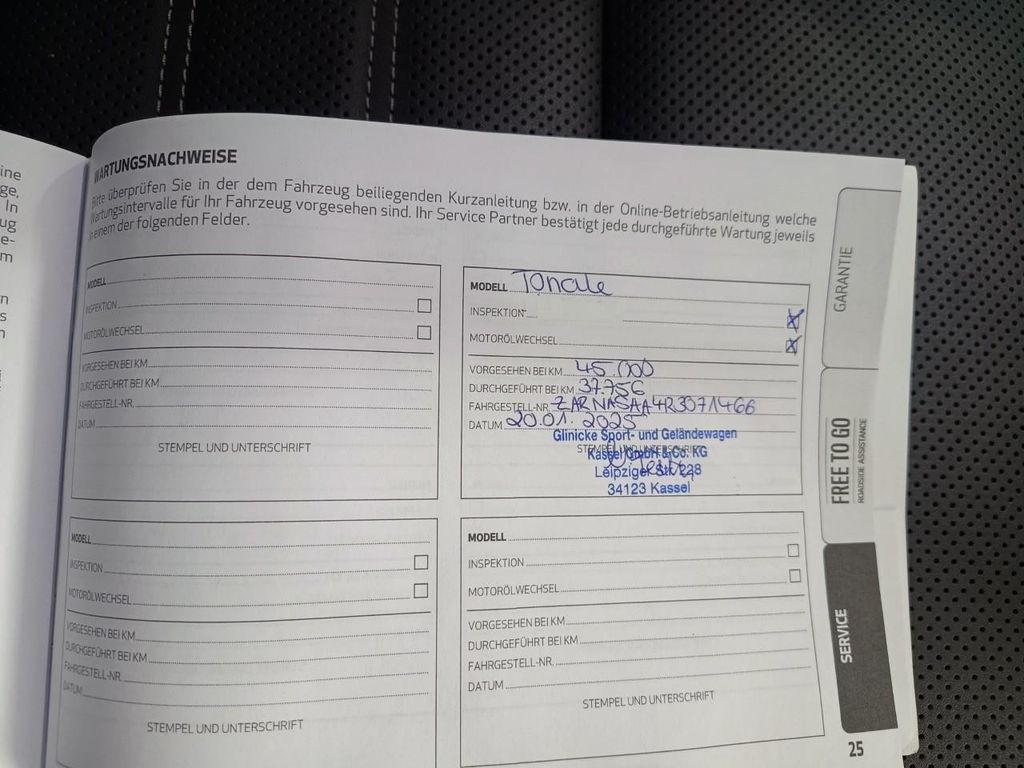 ine
ge,
In
ug
e-
m
n
s
WARTUNGSNACHWEISE
Bitte überprüfen Sie in der dem Fahrzeug beiliegenden Kurzanleitung bzw. in der Online-Betriebsanleitung welche
Wartungsintervalle für Ihr Fahrzeug vorgesehen sind. Ihr Service Partner bestätigt jede durchgeführte Wartung jeweils
in einem der folgenden Felder.
MODELL
INSPEKTION
MOTORÖLWECHSEL
VORGESEHEN BEI KM
DURCHGEFÜHRT BEI KM
FAHRGESTELL-NR.
DATUM
STEMPEL UND UNTERSCHRIFT
MODELL Tonale
INSPEKTION
MOTORÖLWECHSEL
VORGESEHEN BEI KM 45.000
DURCHGEFÜHRT BEI KM 37.756
FAHRGESTELL-NR. ZARNASAA4R3071466
DATUM 20.01.2025
Glinicke Sport- und Geländewagen
STEMPEL UND UNTERSCHRIFT
Kassel GmbH & Co. KG
Leipziger Str. 228
34123 Kassel
MODELL
INSPEKTION
MOTORÖLWECHSEL
VORGESEHEN BEI KM
DURCHGEFÜHRT BEI KM
FAHRGESTELL-NR.
DATUM
STEMPEL UND UNTERSCHRIFT
MODELL
INSPEKTION
MOTORÖLWECHSEL
VORGESEHEN BEI KM
DURCHGEFÜHRT BEI KM
FAHRGESTELL-NR.
DATUM
STEMPEL UND UNTERSCHRIFT
GARANTIE
FREE TO GO
ROADSIDE ASSISTANCE
SERVICE
25